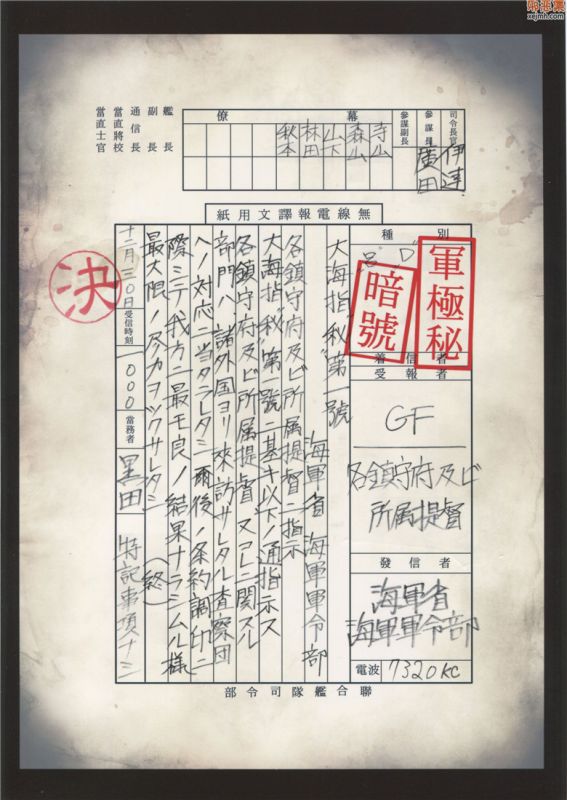 邪恶集
xejmh.com
艦長
副長
通信長
當直將校
當直士官
司令長官
伊達
參謀長
廣田
參謀副長
幕僚
寺山
森山
山下
林田
秋本
無線電報譯文用紙
種別
"D"
軍極秘
暗號
着信者
受報者
GF
各鎮守府及ビ
所属提督
發信者
海軍省
海軍軍令部
電波
7320KC
大海指"秘"第一號
海軍省 海軍軍令部
各鎮守府及ビ所属提督ニ指示
大海指"秘"第一號ニ基キ以下ノ通指示ス
各鎮守府及ビ所属提督 又コレニ関スル
部門ハ 諸外国ヨリ来訪サレタル査察団
ヘノ対応ニ当タラレタシ 爾後ノ条約調印ニ
際シテ我方ニ最モ良ノ結果ナラシムル様
最大限ノ尽力ヲツクサレタシ (終)
十二月三〇日
受信時刻
一〇〇〇
當務者
黒田
特記事項ナシ
決
聯合艦隊司令部